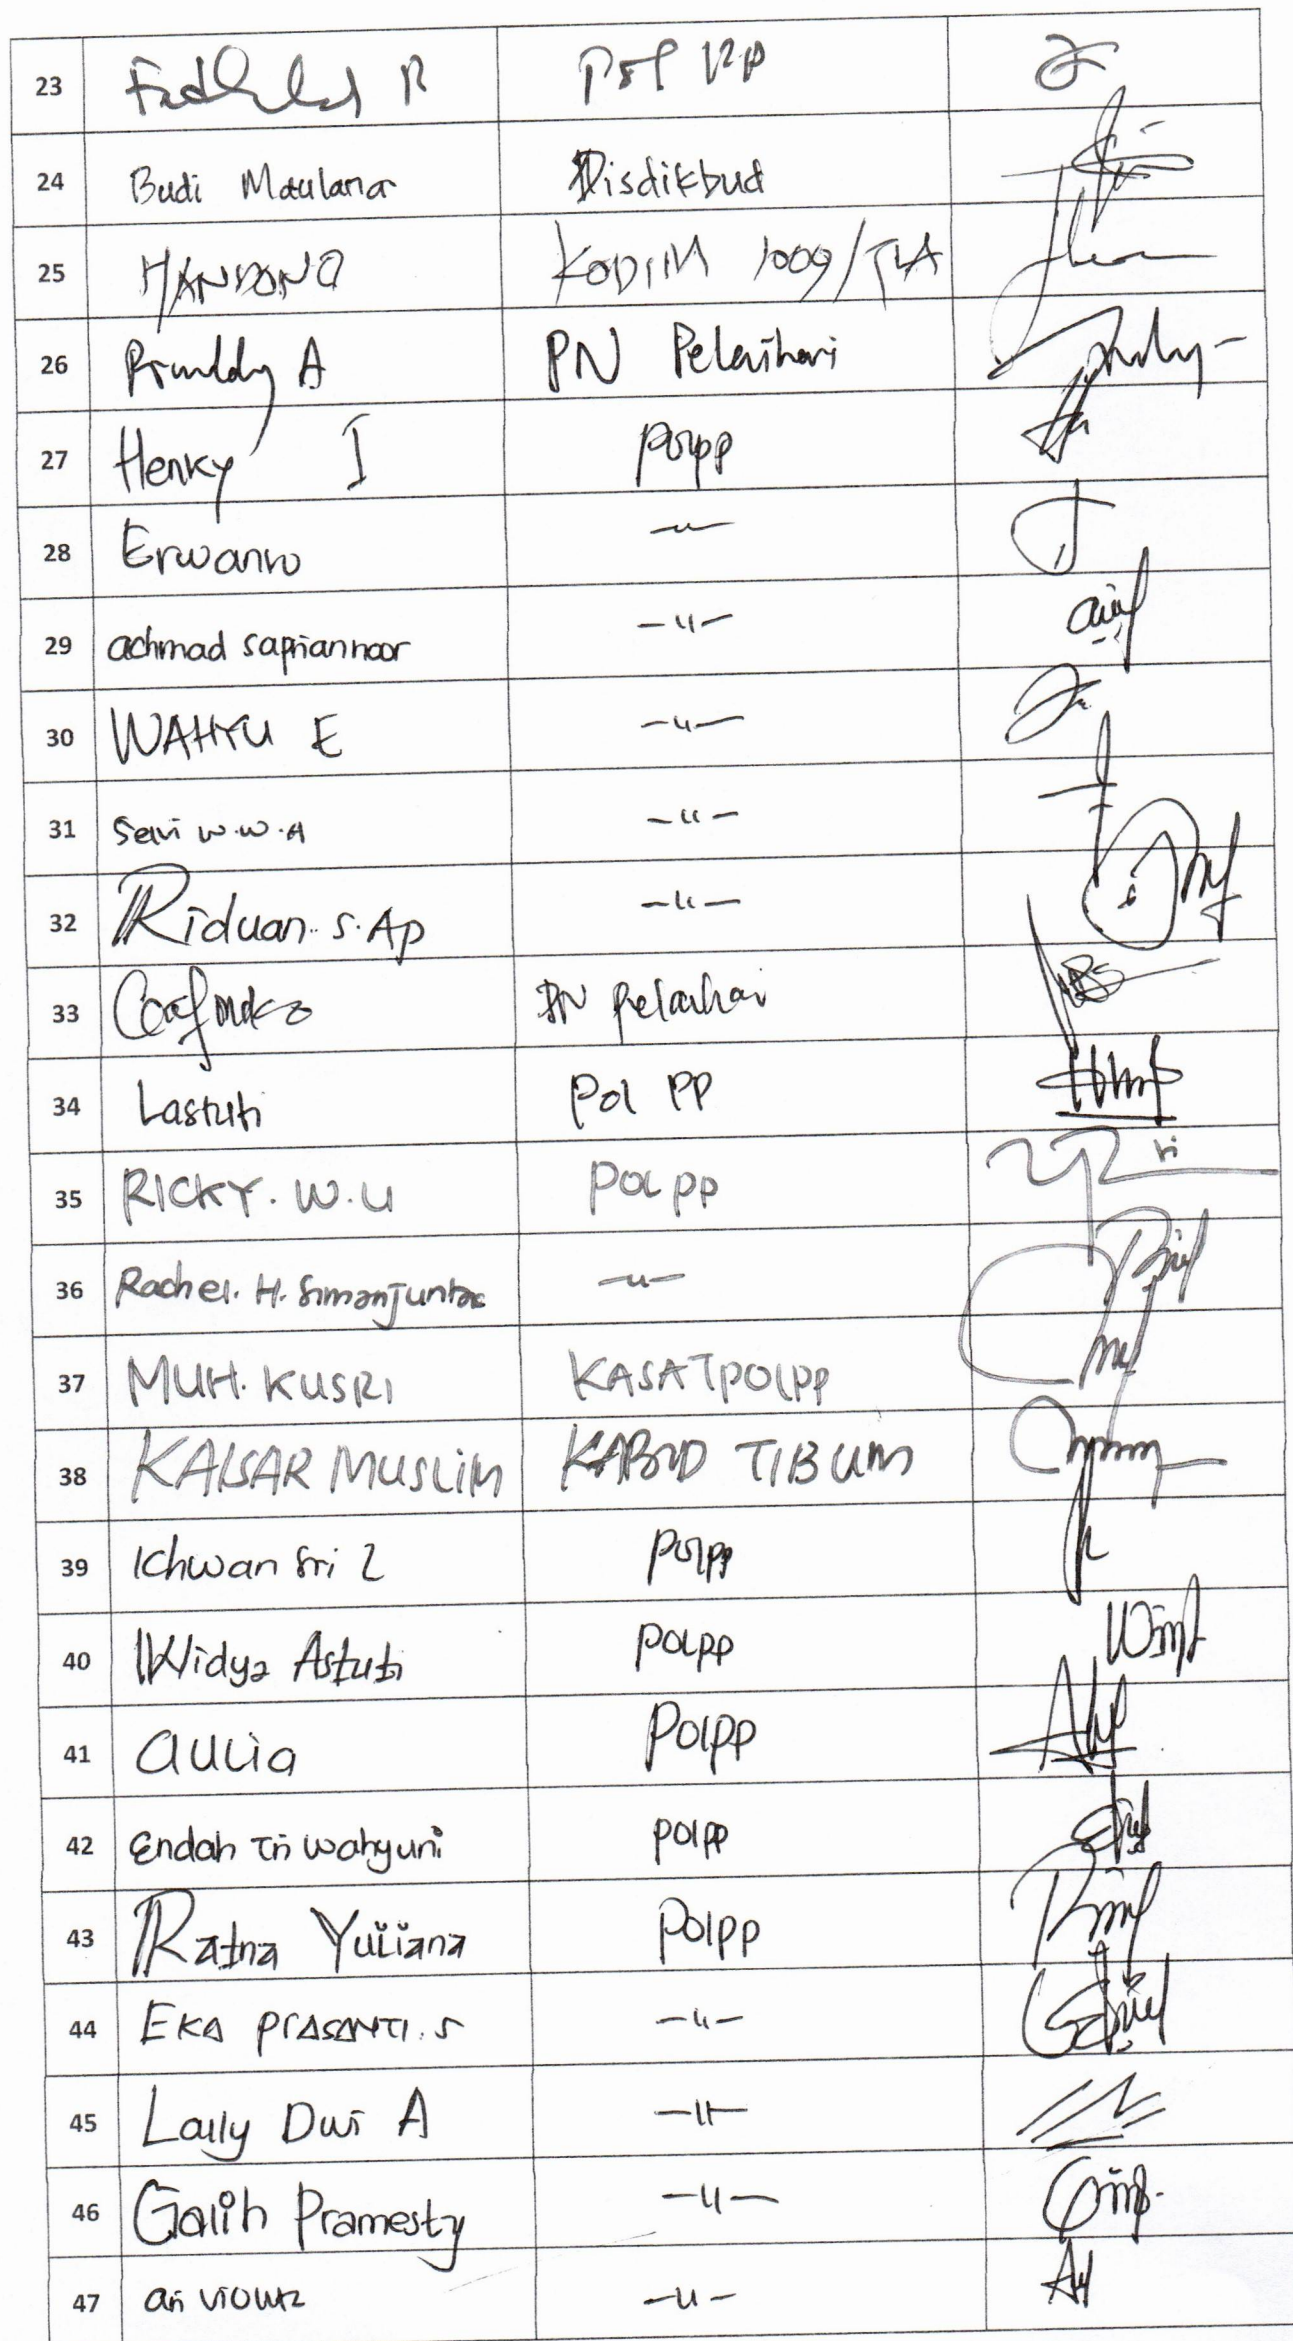 23 R Pol PP
24 Budi Maulana Disdikbud
25 HANDONO KODIM 1009/TLA
26 A PN Pelaihari
27 Henky I Polpp
28 Erwanto -"-
29 achmad sapriannoor -"-
30 WAHYU E -"-
31 W.W.A -"-
32 Riduan. S. Ap -"-
33 PN Pelaihari
34 Lastuti Pol PP
35 RICKY. W. U POL PP
36 Rachel. H. Simanjuntak -"-
37 MUH. KUSRI KASATPOLPP
38 KAISAR MUSLIM KABID TIBUM
39 Ichwan Sri L Polpp
40 Widya Astuti POLPP
41 aulia Polpp
42 Endah Tri Wahyuni polpp
43 Ratna Yuliana Polpp
44 EKA PRASANTI. S -"-
45 Laily Dwi A -"-
46 Galih Pramesty -"-
47 -"-